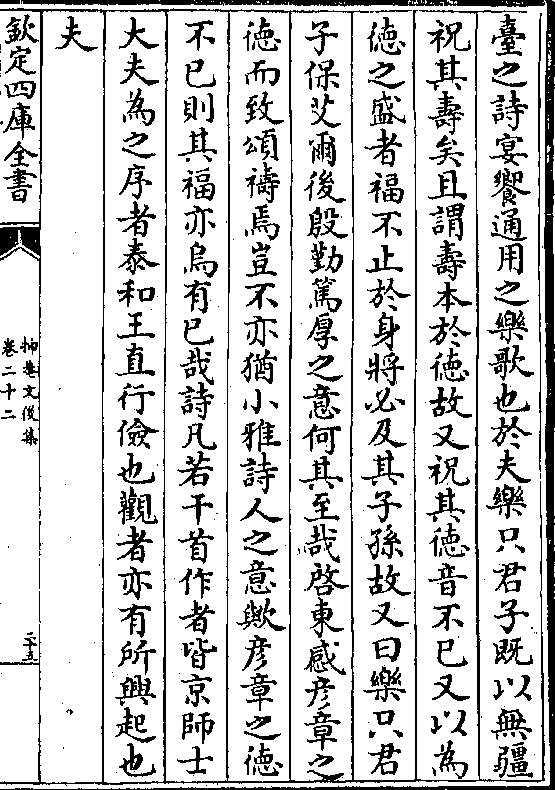 臺之詩宴饗通用之樂歌也於夫樂只君子既以無疆
祝其壽矣且謂壽本於徳故又祝其徳音不已又以為
徳之盛者福不止於身將必及其子孫故又曰樂只君
子保艾爾後殷勤篤厚之意何其至哉啓東感彦章之
徳而致頌禱焉豈不亦猶小雅詩人之意歟彦章之徳
不已則其福亦烏有已哉詩凡若干首作者皆京師士
大夫為之序者泰和王直行儉也觀者亦有所興起也
夫
欽定四庫全書
抑菴文後集
卷二十二
二十五